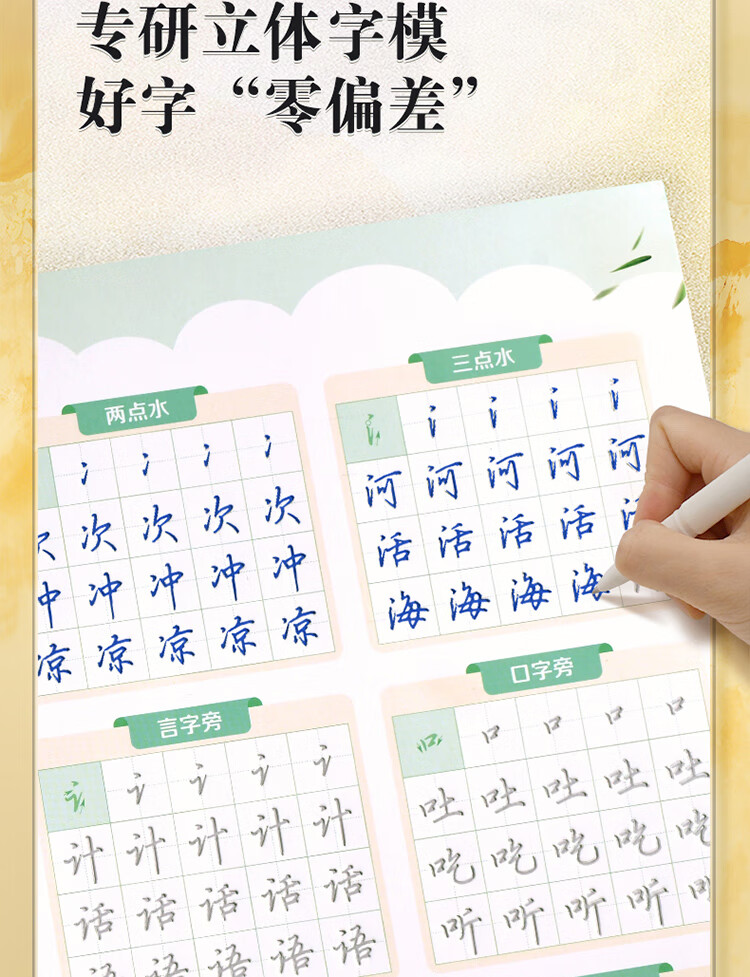 专研立体字模
好字“零偏差”
两点水
冫 冫 冫 冫
次 次 次 次
冲 冲 冲 冲 冲
凉 凉 凉 凉 凉
三点水
氵 氵 氵 氵 氵
河 河 河 河 河
活 活 活 活
海 海 海 海
言字旁
讠 讠 讠 讠 讠
计 计 计 计 计
话 话 话 话 话
语 语 语
口字旁
口 口 口 口 口
吐 吐 吐 吐 吐
吃 吃 吃 吃 吃
听 听 听 听